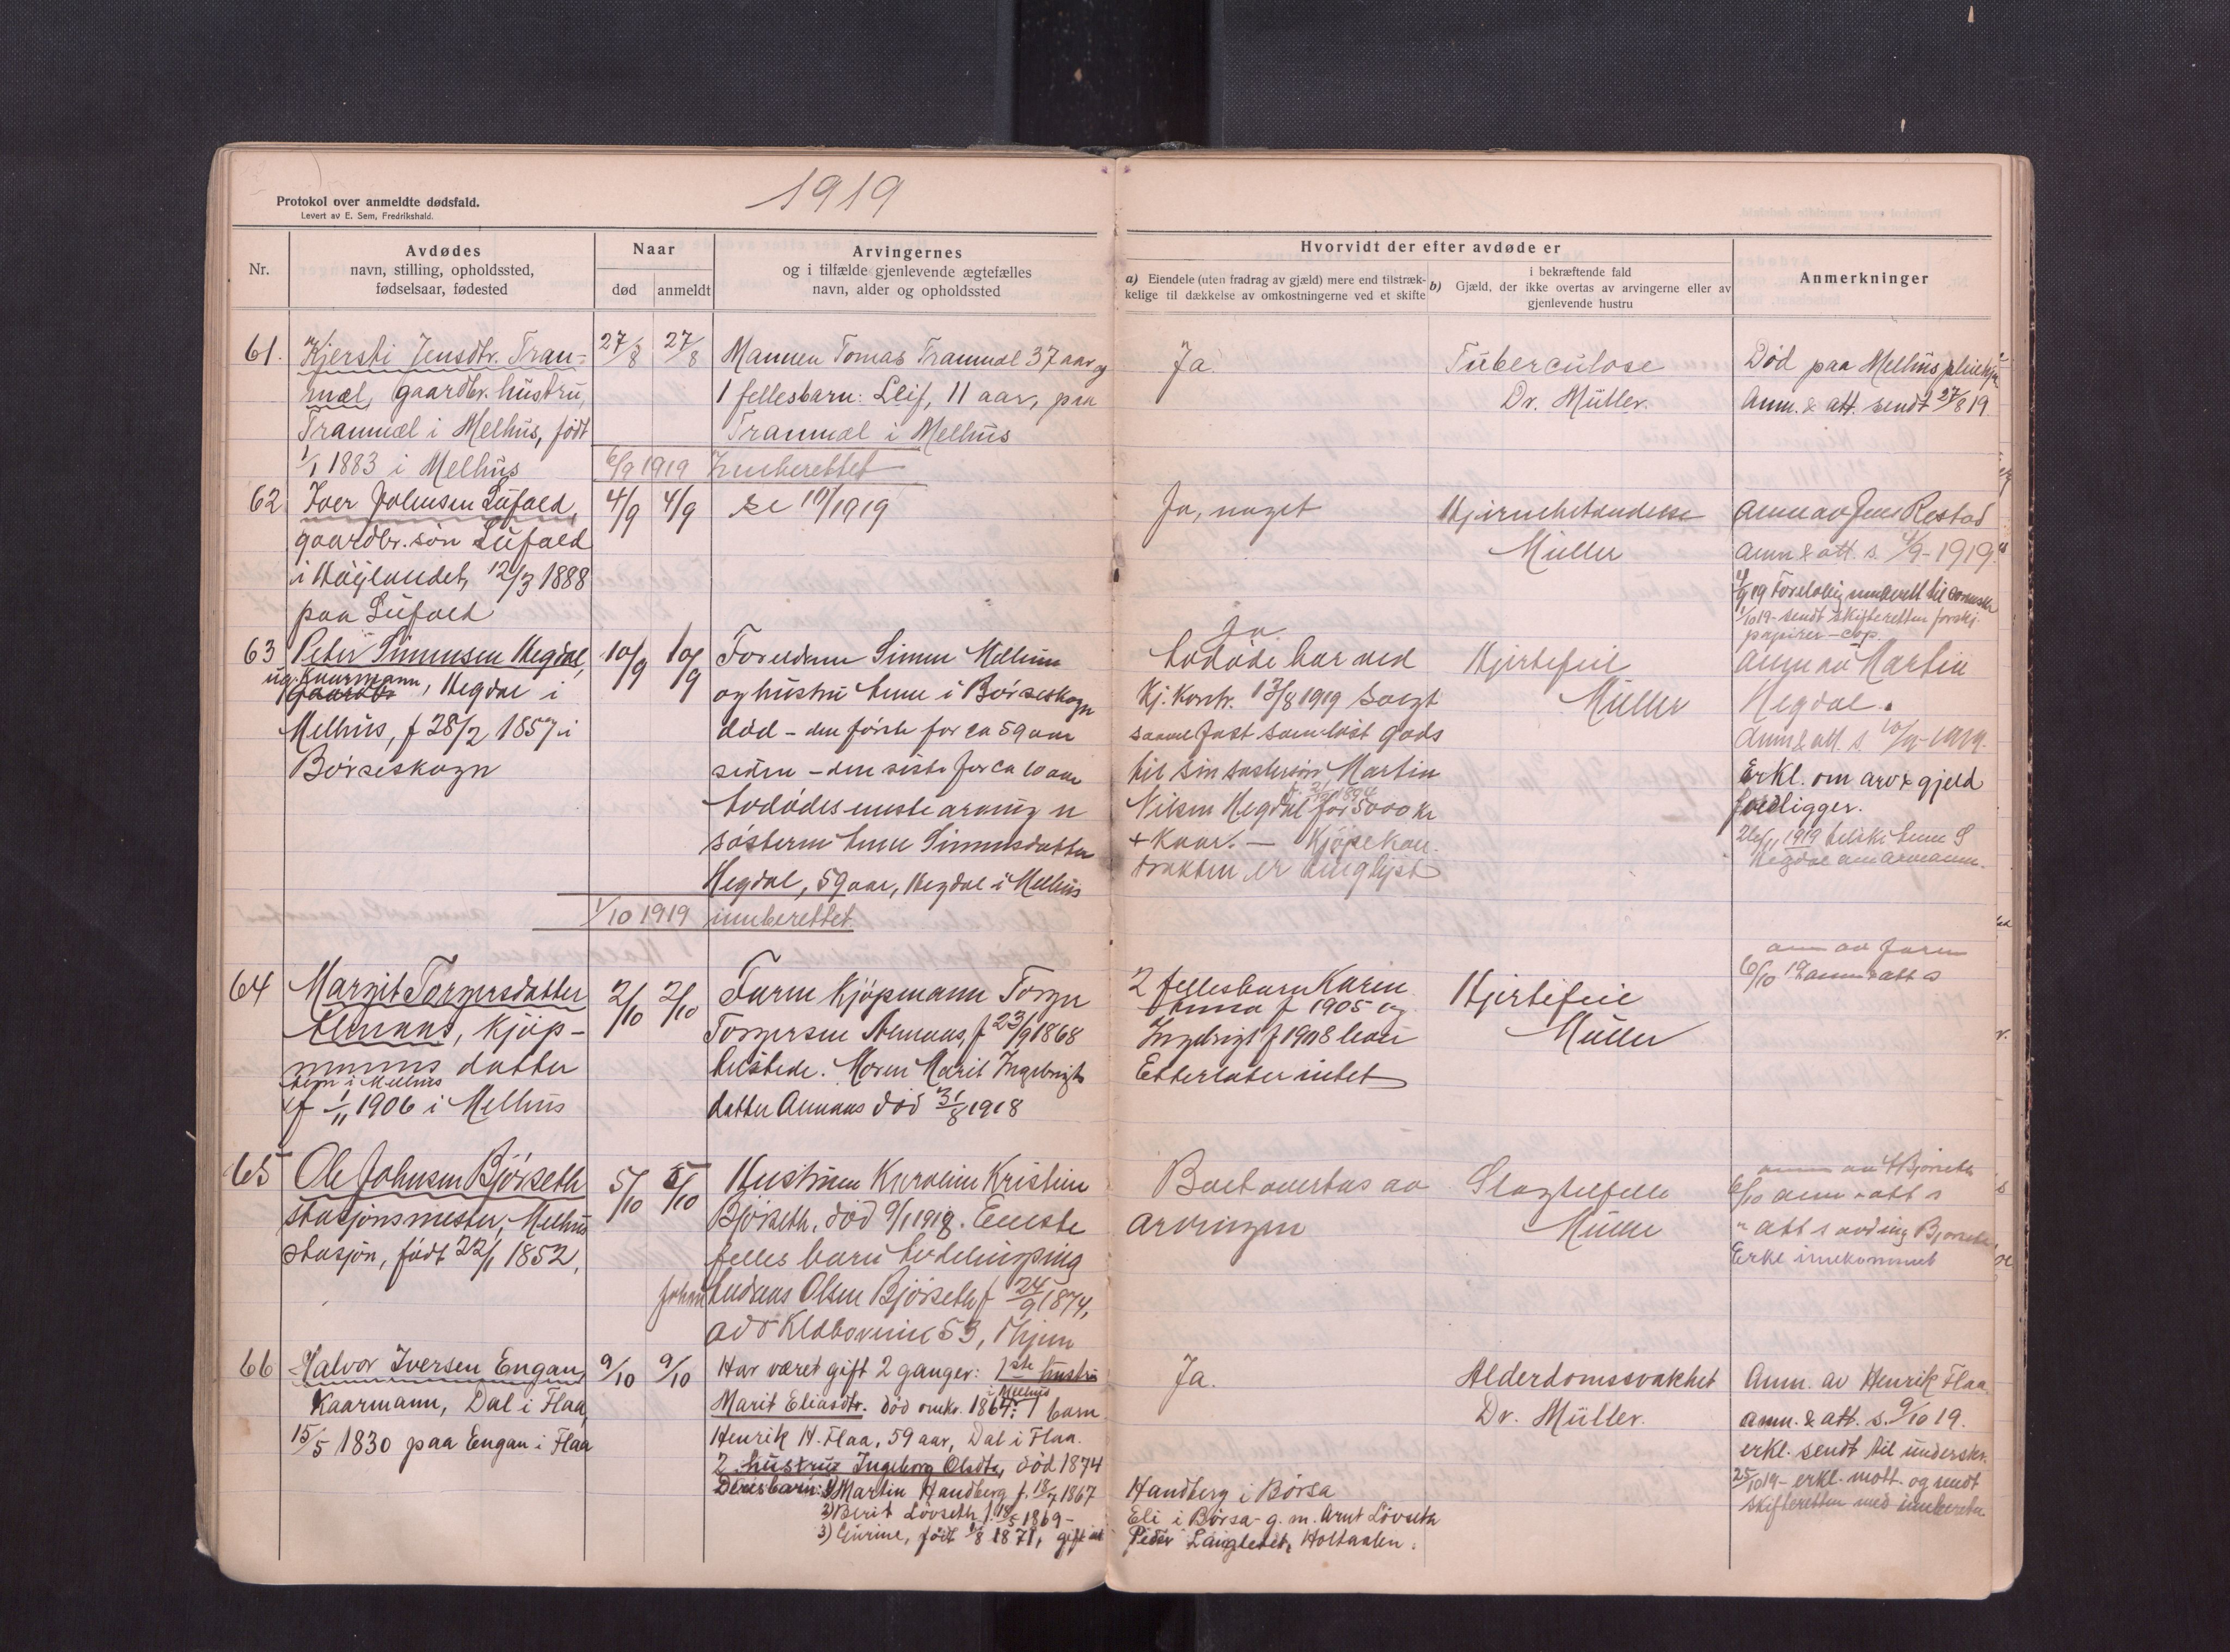 Protokol over anmeldte dødsfald.
Levert av E. Sem, Fredrikshald.
1919
Nr.
Avdødes
navn, stilling, opholdssted,
fødselsaar, fødested
Naar
død
anmeldt
Arvingernes
og i tilfælde gjenlevende ægtefælles
navn, alder og opholdssted
Hvorvidt der efter avdøde er
a) Eiendele (uten fradrag av gjæld) mere end tilstræk-
kelige til dækkelse av omkostningerne ved et skifte
b)
i bekræftende fald
Gjæld, der ikke overtas av arvingerne eller av
gjenlevende hustru
Anmerkninger
61.
Kjersti Jensdtr. Tran-
mæl, gaardbr. hustru,
Tranmæl i Melhus, født
1/1 1883 i Melhus
27/8
27/8
Mannen Tomas Tranmæl 37 aar og
1 fellesbarn: Leif, 11 aar, paa
Tranmæl i Melhus
6/9 1919 Innberettet
Ja
Tuberculose
Dr. Müller.
Død paa Melhus pleiehjem
Anm. & att. sendt 27/8 19.
62
Iver Johnsen Lufald,
gaardbr. søn Lufald
i Høilandet, 12/3 1888
paa Lufald
4/9
4/9
se 19/1919
Ja, noget
Hjernebetendelse
Müller
anm av Jens Restad
anm & att. s. 4/9-1919.
4/9 19 Foreløbig innberett til
1/10 19 - sendt skifteretten forskj.
papirer - cop.
63
Peter Simonsen Hegdal,
ug. kaarmann, Hegdal i
Melhus, f 28/2 1857 i
Børseskogn
10/9
10/9
Foreldrene Simon
og hustru Anne i Børseskogn
død - den første for ca 59 aar
siden - den siste for ca 10 aar
Avdødes eneste arving er
søsteren Anne Simonsdatter
Hegdal, 59 aar, Hegdal i Melhus
1/10 1919 innberettet.
Ja
Avdøde har ved
Kj. Kontr. 13/8 1919 solgt
saavel fast som løst gods
til sin søstersøn Martin
Nilsen Hegdal for 5000 kr
+ Kaar. - Kjøpekon-
trakten er tinglyst
Hjertefeil
Müller
anm av Martin
Hegdal.
Anm & att. s. 10/9-1919.
Erkl. om arv & gjeld
foreligger.
1919 Anne S
Hegdal
64
Margit Torgersdatter
Almaas, kjøp-
manns datter
hjem i Melhus
f 1/11 1906 i Melhus
2/10
2/10
Faren Kjøpmann Torger
Torgersen Almaas, f 23/9 1868
testede. Moren Marit Ingebrigts
datter Almaas død 31/8 1918
2 fellesbarn Karen
Anna f 1905 og
Ingebrigt f 1908 lever
Etterlater intet
Hjertefeil
Müller
anm av faren
6/10 19 anm & att s
65
Ole Johnsen Bjørseth
stasjonsmester, Melhus
stasjon, født 22/1 1852,
5/10
5/10
Hustruen Karoline Kristine
Bjørseth, død 9/1 1918. Eneste
felles barn
Johan Andreas Olsen Bjørseth f 24/9 1874,
adr Klæboveien 53, Thjem
Boet overtas av
arvingen
Slagtilfelle
Müller
anm av Bjørseth
6/10 anm & att s
Erkl innkommet
66
Halvor Iversen Engan,
Kaarmann, Dal i Flaa,
15/5 1830 paa Engan i Flaa
9/10
9/10
Har været gift 2 ganger: 1ste hustru
Marit Eliasdtr. død omkr. 1864: i Melhus 1 barn
Henrik H. Flaa, 59 aar, Dal i Flaa.
2. hustru Ingeborg Olsdtr, død 1874
Deres barn: 1) Martin Handberg f. 18/7 1867
2) Berit Løvseth f. 18/5 1869 -
3) Gurine, født 1/8 1871, gift m
Ja.
Handberg i Børsa
Eli i Børsa - g. m. Arnt Løvseth
Peder Langletet, Holtaalen.
Alderdomssvakhet
Dr. Müller.
Anm. av Henrik Flaa
anm. & att. s. 9/10 19.
erkl. sendt til underskr.
25/10 19 - erkl. mott. og sendt
skifteretten med innberetn